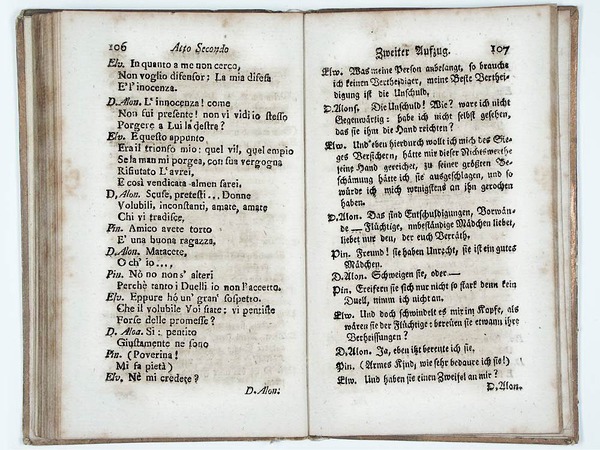 106 Atto Secondo
Elv. In quanto a me non cerco,
Non voglio difensor; La mia difesa
E' l'inocenza.
D. Alon. L' innocenza! come
Non fui presente! non vi vidi io stesso
Porgere a Lui la destra?
Elv. E questo appunto
Era il trionfo mio: quel vil, quel empio
Se la man mi porgea, con sua vergogna
Rifiutato L'avrei,
E così vendicata almen sarei.
D, Alon. Scuse, pretesti... Donne
Volubili, inconstanti, amate, amate
Chi vi tradisce,
Pin. Amico avete torto
E' una buona ragazza,
D, Alon. Matacete,
O ch' io...,
Pin. Nò no non s' alteri
Perchè tanto i Duelli io non l'accetto.
Elv. Eppure hó un' gran' sospetto.
Che il volubile Voi siate: vi pentiste
Forse delle promesse?
D. Alon. Si: pentito
Giustamente ne sono
Pin. (Poverina!
Mi fa pietà)
Elv, Nè mi credete?
D. Alon:
Zweiter Aufzug. 107
Elw. Was meine Person anbelangt, so brauche
ich keinen Vertheidiger, meine Beste Verthei-
digung ist die Unschuld,
D. Alons. Die Unschuld! Wie? ware ich nicht
Gegenwärtig: habe ich nicht selbst gesehen,
das sie ihm die Hand reichten?
Elw. Und eben hierdurch wollt ich mich des Sie-
ges Versichern, hätte mir dieser Nichtswerthe
seine Hand gereichet, zu seiner größten Be-
schämung hätte ich sie ausgeschlagen, und so
würde ich mich wenigstens an ihn gerochen
haben.
D. Alon. Das sind Entschuldigungen, Vorwän-
de — Flüchtige, unbeständige Mädchen liebet,
liebet nur den, der euch Verräth.
Pin. Freund! sie haben Unrecht, sie ist ein gutes
Mädchen.
D. Alon. Schweigen sie, oder —
Pin. Ereifern sie sich nur nicht so stark denn kein
Duell, nimm ich nicht an.
Elw. Und doch schwindelt es mir im Kopfe, als
wären sie der Flüchtige: bereuten sie etwann ihre
Verheissungen?
D. Alon. Ja, eben itzt bereute ich sie,
Pin. (Armes Kind, wie sehr bedaure ich sie!)
Elw. Und haben sie einen Zweifel an mir?
D. Alon.